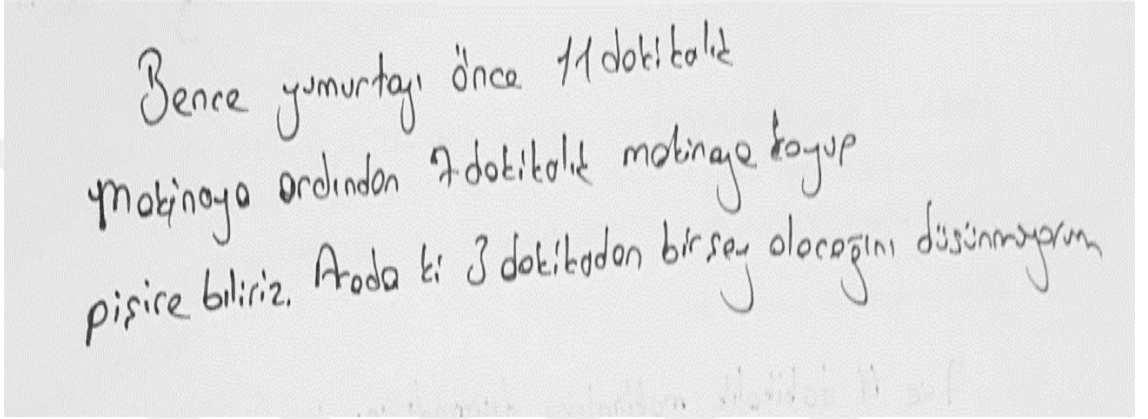 Bence yumurtayı önce 11 dakikalık
makinaya ardından 7 dakikalık makinaya koyup
pişire biliriz. Arada ki 3 dakikadan bir şey olacağını düşünmüyorum